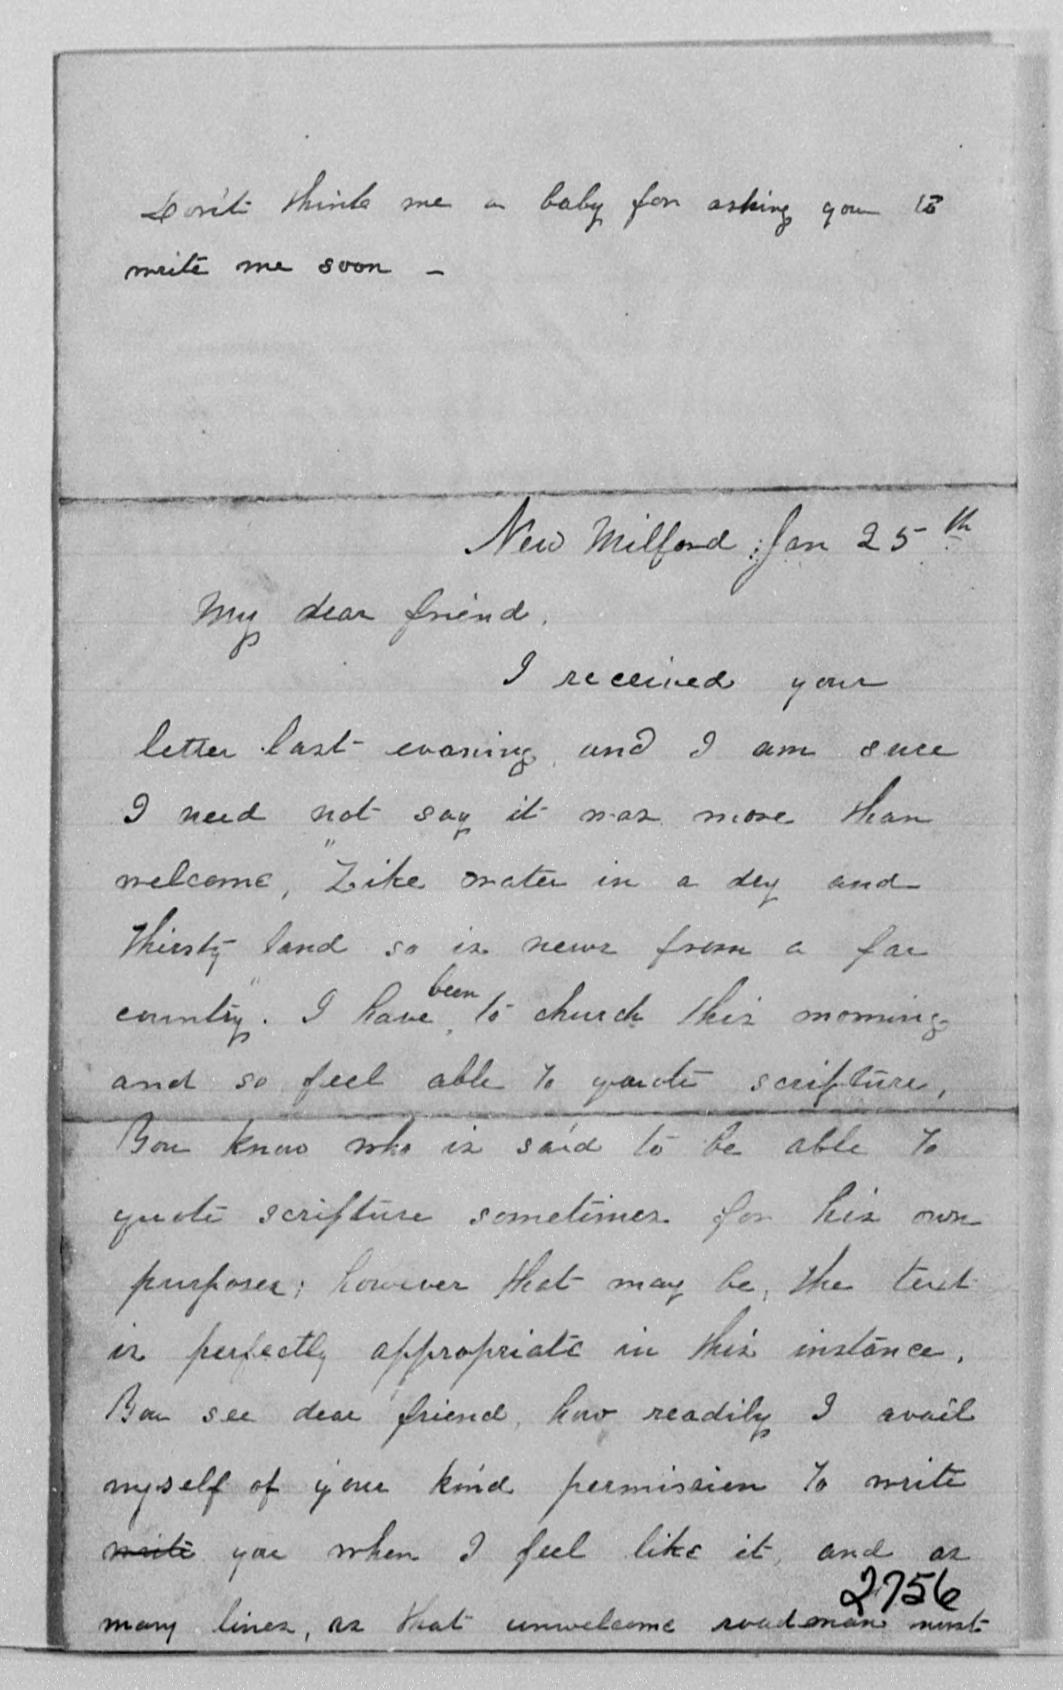 Don't think me a baby for asking you to
write me soon –
New Milford Jan 25th
My dear friend,
I received your
letter last evening, and I am sure
I need not say it was more than
welcome, "Like water in a dry and
thirsty land so is news from a far
country". I have been to church this morning
and so feel able to quote scripture,
You know who is said to be able to
quote scripture sometimes for his own
purposes; however that may be, the text
is perfectly appropriate in this instance.
You see dear friend, how readily I avail
myself of your kind permission to write
write you when I feel like it, and as
2756
many lines, as that unwelcome roadman must